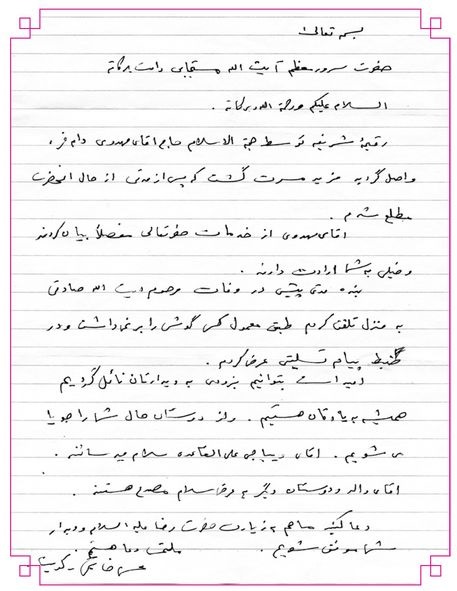 بسمه تعالی
حضرت سرور معظم آیت الله مستجابی دامت برکاته
السلام علیکم ورحمة الله وبرکاته .
رقیمهٔ شریفه توسط حجة الاسلام حاج آقای مهدوی دام فره
واصل گردید مزید مسرت گشت که پس از مدتی از حال آنحضرت
مطلع شدم .
آقای مهدوی از خدمات حضرتعالی مفصلاً بیان کردند
و خیلی به شما ارادت دارند .
بنده مدتی پیش در وفات مرحوم آیت الله صادقی
به منزل تلفن کردم طبق معمول کسی گوشی را بر نمیداشت و در
ضبط پیام تسلیتی عرض کردم .
امید است بتوانیم بزودی به دیدارتان نائل گردیم
همیشه به یادتان هستیم . واز دوستان حال شما را جویا
می شویم . آقای دیباجی علی القاعده سلام میرسانند .
آقای والد و دوستان دیگر به عرض سلام مصدع هستند .
دعا کنید ما هم به زیارت حضرت رضا علیه السلام و دیدار
شما موفق شویم . ملتمس دعا هستیم .